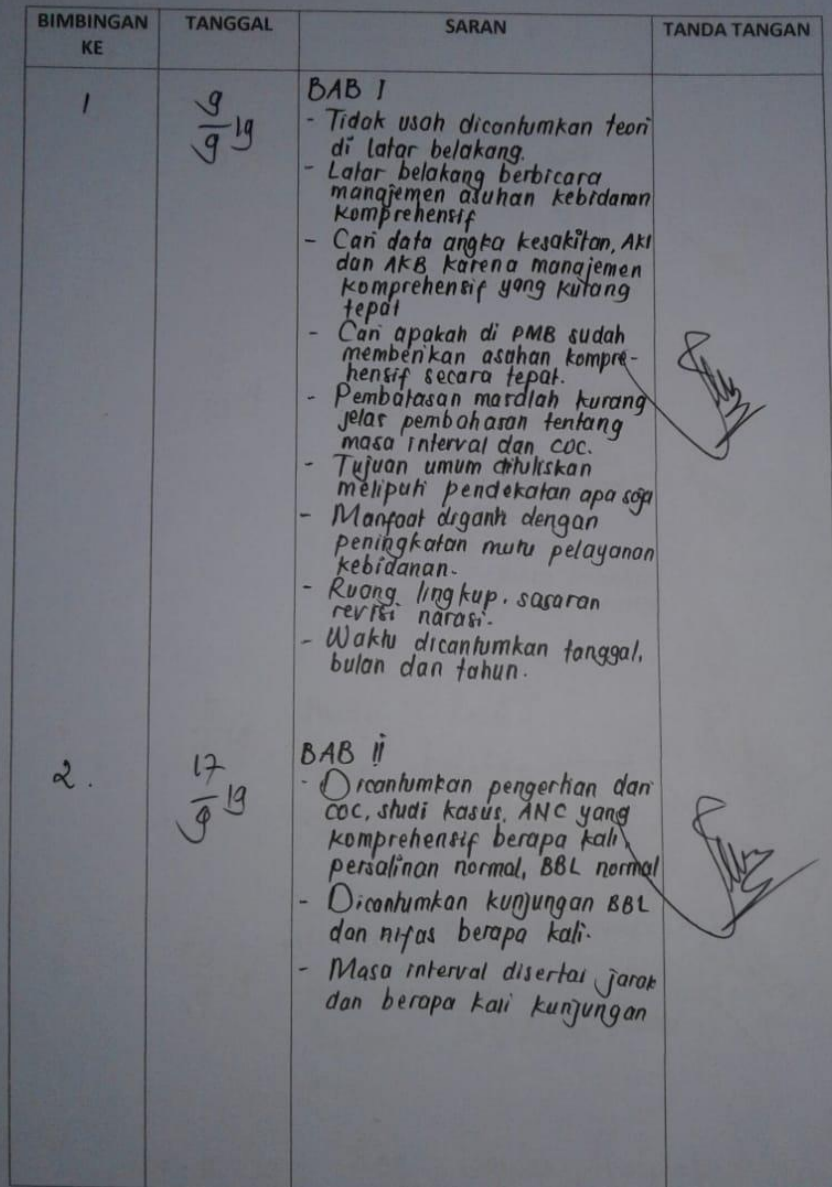 BIMBINGAN KE TANGGAL SARAN TANDA TANGAN
1 9/9 19 BAB I
- Tidak usah dicantumkan teori
di latar belakang.
- Latar belakang berbicara
manajemen asuhan kebidanan
komprehensif
- Cari data angka kesakitan, AKI
dan AKB karena manajemen
komprehensif yang kurang
tepat
- Cari apakah di PMB sudah
memberikan asuhan kompre-
hensif secara tepat.
- Pembatasan masalah kurang
jelas pembahasan tentang
masa interval dan COC.
- Tujuan umum dituliskan
meliputi pendekatan apa saja
- Manfaat diganti dengan
peningkatan mutu pelayanan
kebidanan.
- Ruang lingkup. sasaran
revisi narasi.
- Waktu dicantumkan tanggal,
bulan dan tahun.
2. 17/9 19 BAB ii
- Dicantumkan pengertian dari
COC, studi kasus, ANC yang
komprehensif berapa kali,
persalinan normal, BBL normal
- Dicantumkan kunjungan BBL
dan nifas berapa kali.
- Masa interval disertai jarak
dan berapa kali kunjungan